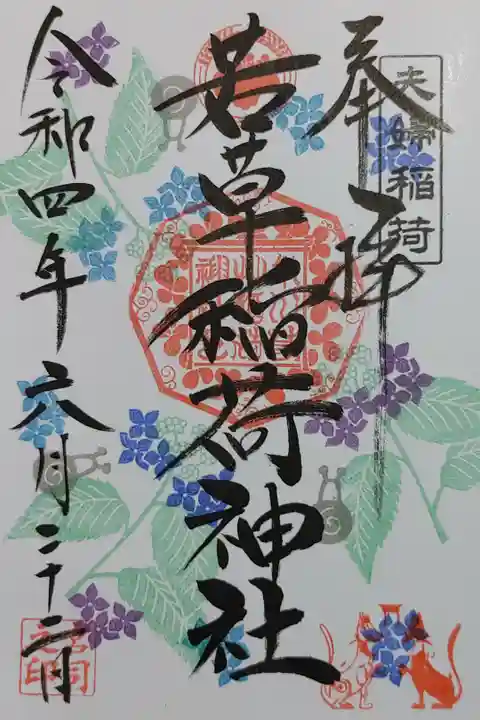 夫婦稲荷
奉拝
若草稲荷神社
令和四年六月二十二日
宮司之印